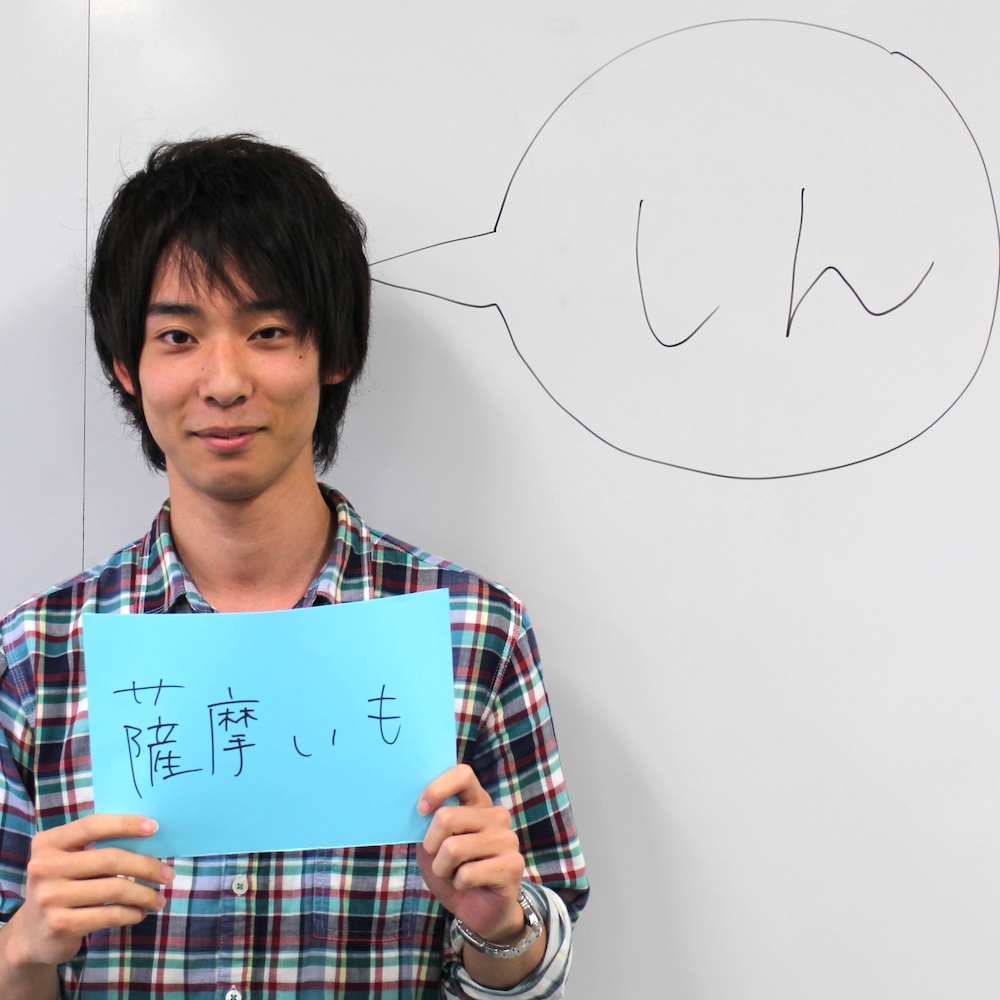 しん
薩摩いも